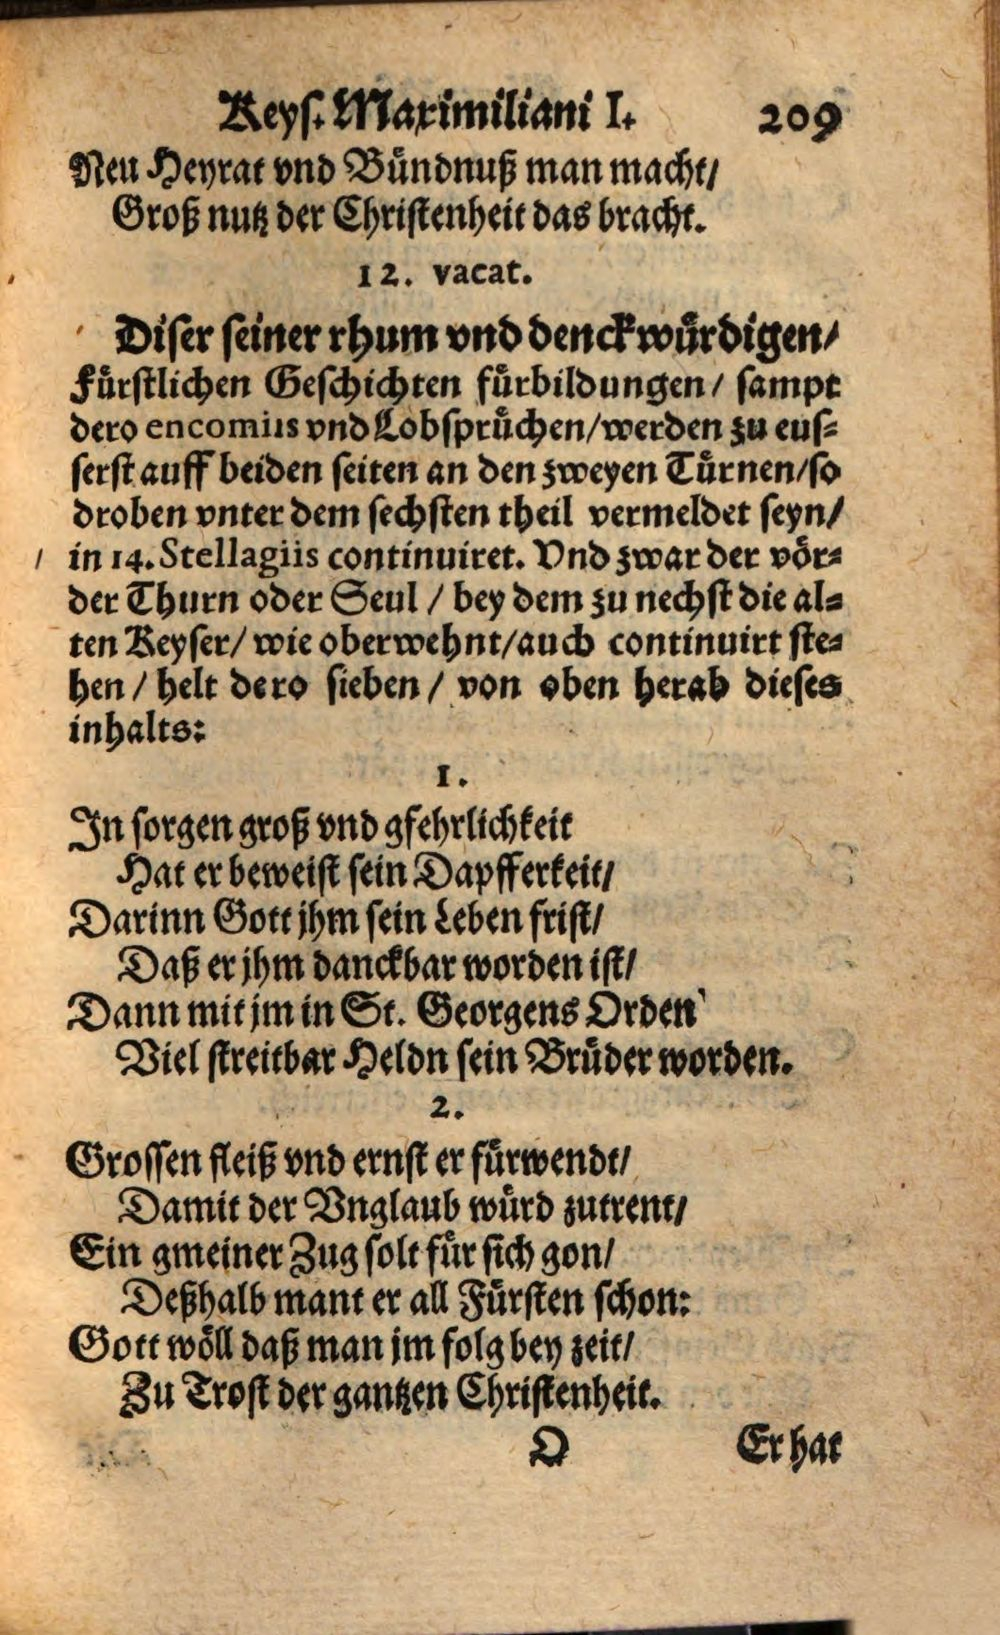 Keys. Maximiliani I. 209
Neu Heyrat vnd Bündnuß man macht/
Groß nutz der Christenheit das bracht.
12. vacat.
Diser seiner rhum vnd denckwürdigen/
Fürstlichen Geschichten fürbildungen/ sampt
dero encomiis vnd Lobsprüchen/werden zu eus-
serst auff beiden seiten an den zweyen Türnen/so
droben vnter dem sechsten theil vermeldet seyn/
in 14. Stellagiis continuiret. Vnd zwar der vör-
der Thurn oder Seul / bey dem zu nechst die al-
ten Keyser/ wie oberwehnt/auch continuirt ste-
hen / helt dero sieben / von oben herab dieses
inhalts:
1.
In sorgen groß vnd gfehrlichkeit
Hat er beweist sein Dapfferkeit/
Darinn Gott jhm sein Leben frist/
Daß er jhm danckbar worden ist/
Dann mit jm in St. Georgens Orden
Viel streitbar Heldn sein Brüder worden.
2.
Grossen fleiß vnd ernst er fürwendt/
Damit der Vnglaub würd zutrent/
Ein gmeiner Zug solt für sich gon/
Deßhalb mant er all Fürsten schon:
Gott wöll daß man jm folg bey zeit/
Zu Trost der gantzen Christenheit.
O Er hat